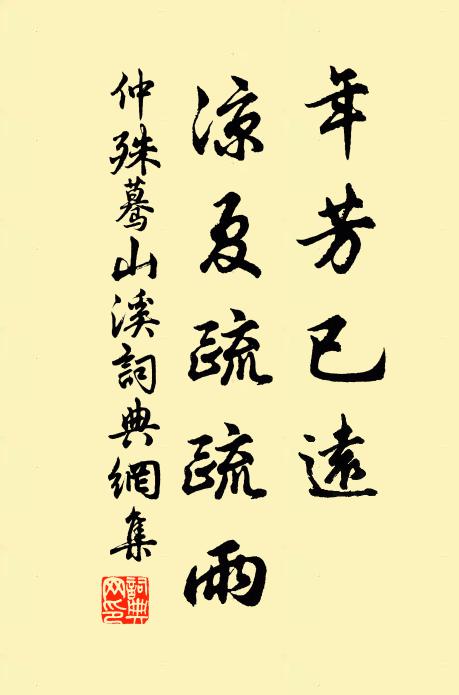 年芳已遠
凉夏疏疏雨
仲殊驀山溪詞典網集
詞典网印